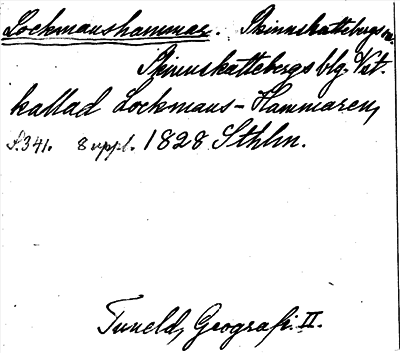 Lockmanshammar. Skinnskattebergs sn.
Skinnskattebergs blg. Vst.
kallad Lockmans-Hammaren,
S. 341. 8 uppl. 1828 Sthlm.
Tuneld, Geografi. II.